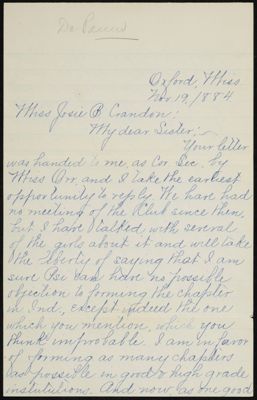 De Pauw
Oxford, Miss
Nov 19, 1884
Miss Josie B Crandon;
My dear Sister;-
Your letter
was handed to me, as Cor. Sec. by
Miss Orr, and I take the earliest
opportunity to reply. We have had
no meeting of the Club since then,
but I have talked with several
of the girls about it and will take
the liberty of saying that I am
sure Psi can have no possible
objection to forming the chapter
in Ind., except indeed the one
which you mention, which you
think improbable. I am in favor
of forming as many chapters
as possible in good & high grade
institutions. And now as one good